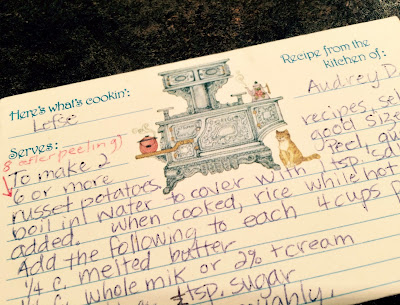 Here's what's cookin':
Lefse
Recipe from the
kitchen of:
Audrey D
Serves:
8 after peeling)
To make 2 recipes, sel
6 or more good size
russet potatoes Peel, qu
boil in water to cover with 1 tsp. sa
added. When cooked, rice while hot
Add the following to each 4 cups p
1/4 c. melted butter
whole milk or 2% + cream
tsp. sugar